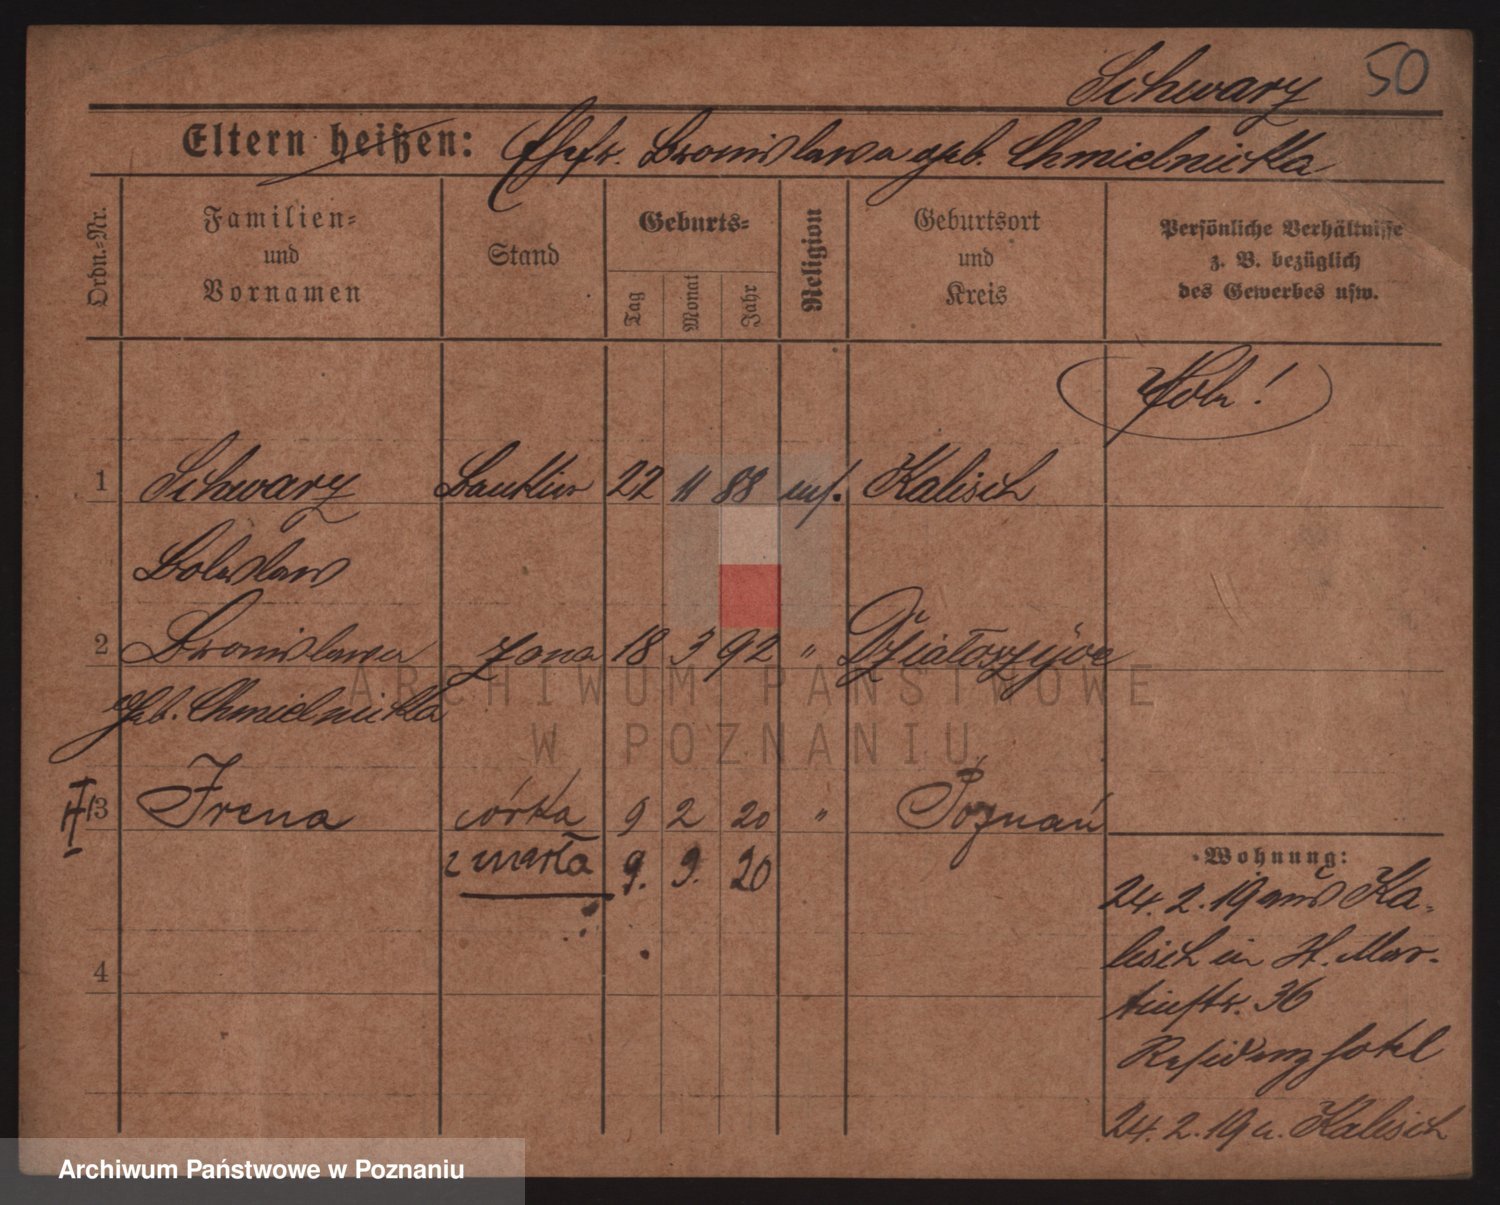 Schwarz 50
Eltern heißen: Ehefr. Bronislawa geb. Chmielnicka
Ordn.-Nr.
Familien-
und
Vornamen
Stand
Geburts-
Tag
Monat
Jahr
Religion
Geburtsort
und
Kreis
Persönliche Verhältnisse
z. B. bezüglich
des Gewerbes usw.
1 Schwarz 22 11 88 Kalisch
Boleslaw
2 Bronislawa żona 18 3 92 " Działoszyce
geb. Chmielnicka
3 Irena córka 9 2 20 " Poznań
zmarła 9. 9. 20
4
Wohnung:
24. 2. 19 aus Ka-
lisch in St. Mar-
tinstr. 36
Residenzhotel
24. 2. 19 a. Kalisch
ARCHIWUM PAŃSTWOWE
W POZNANIU
Archiwum Państwowe w Poznaniu